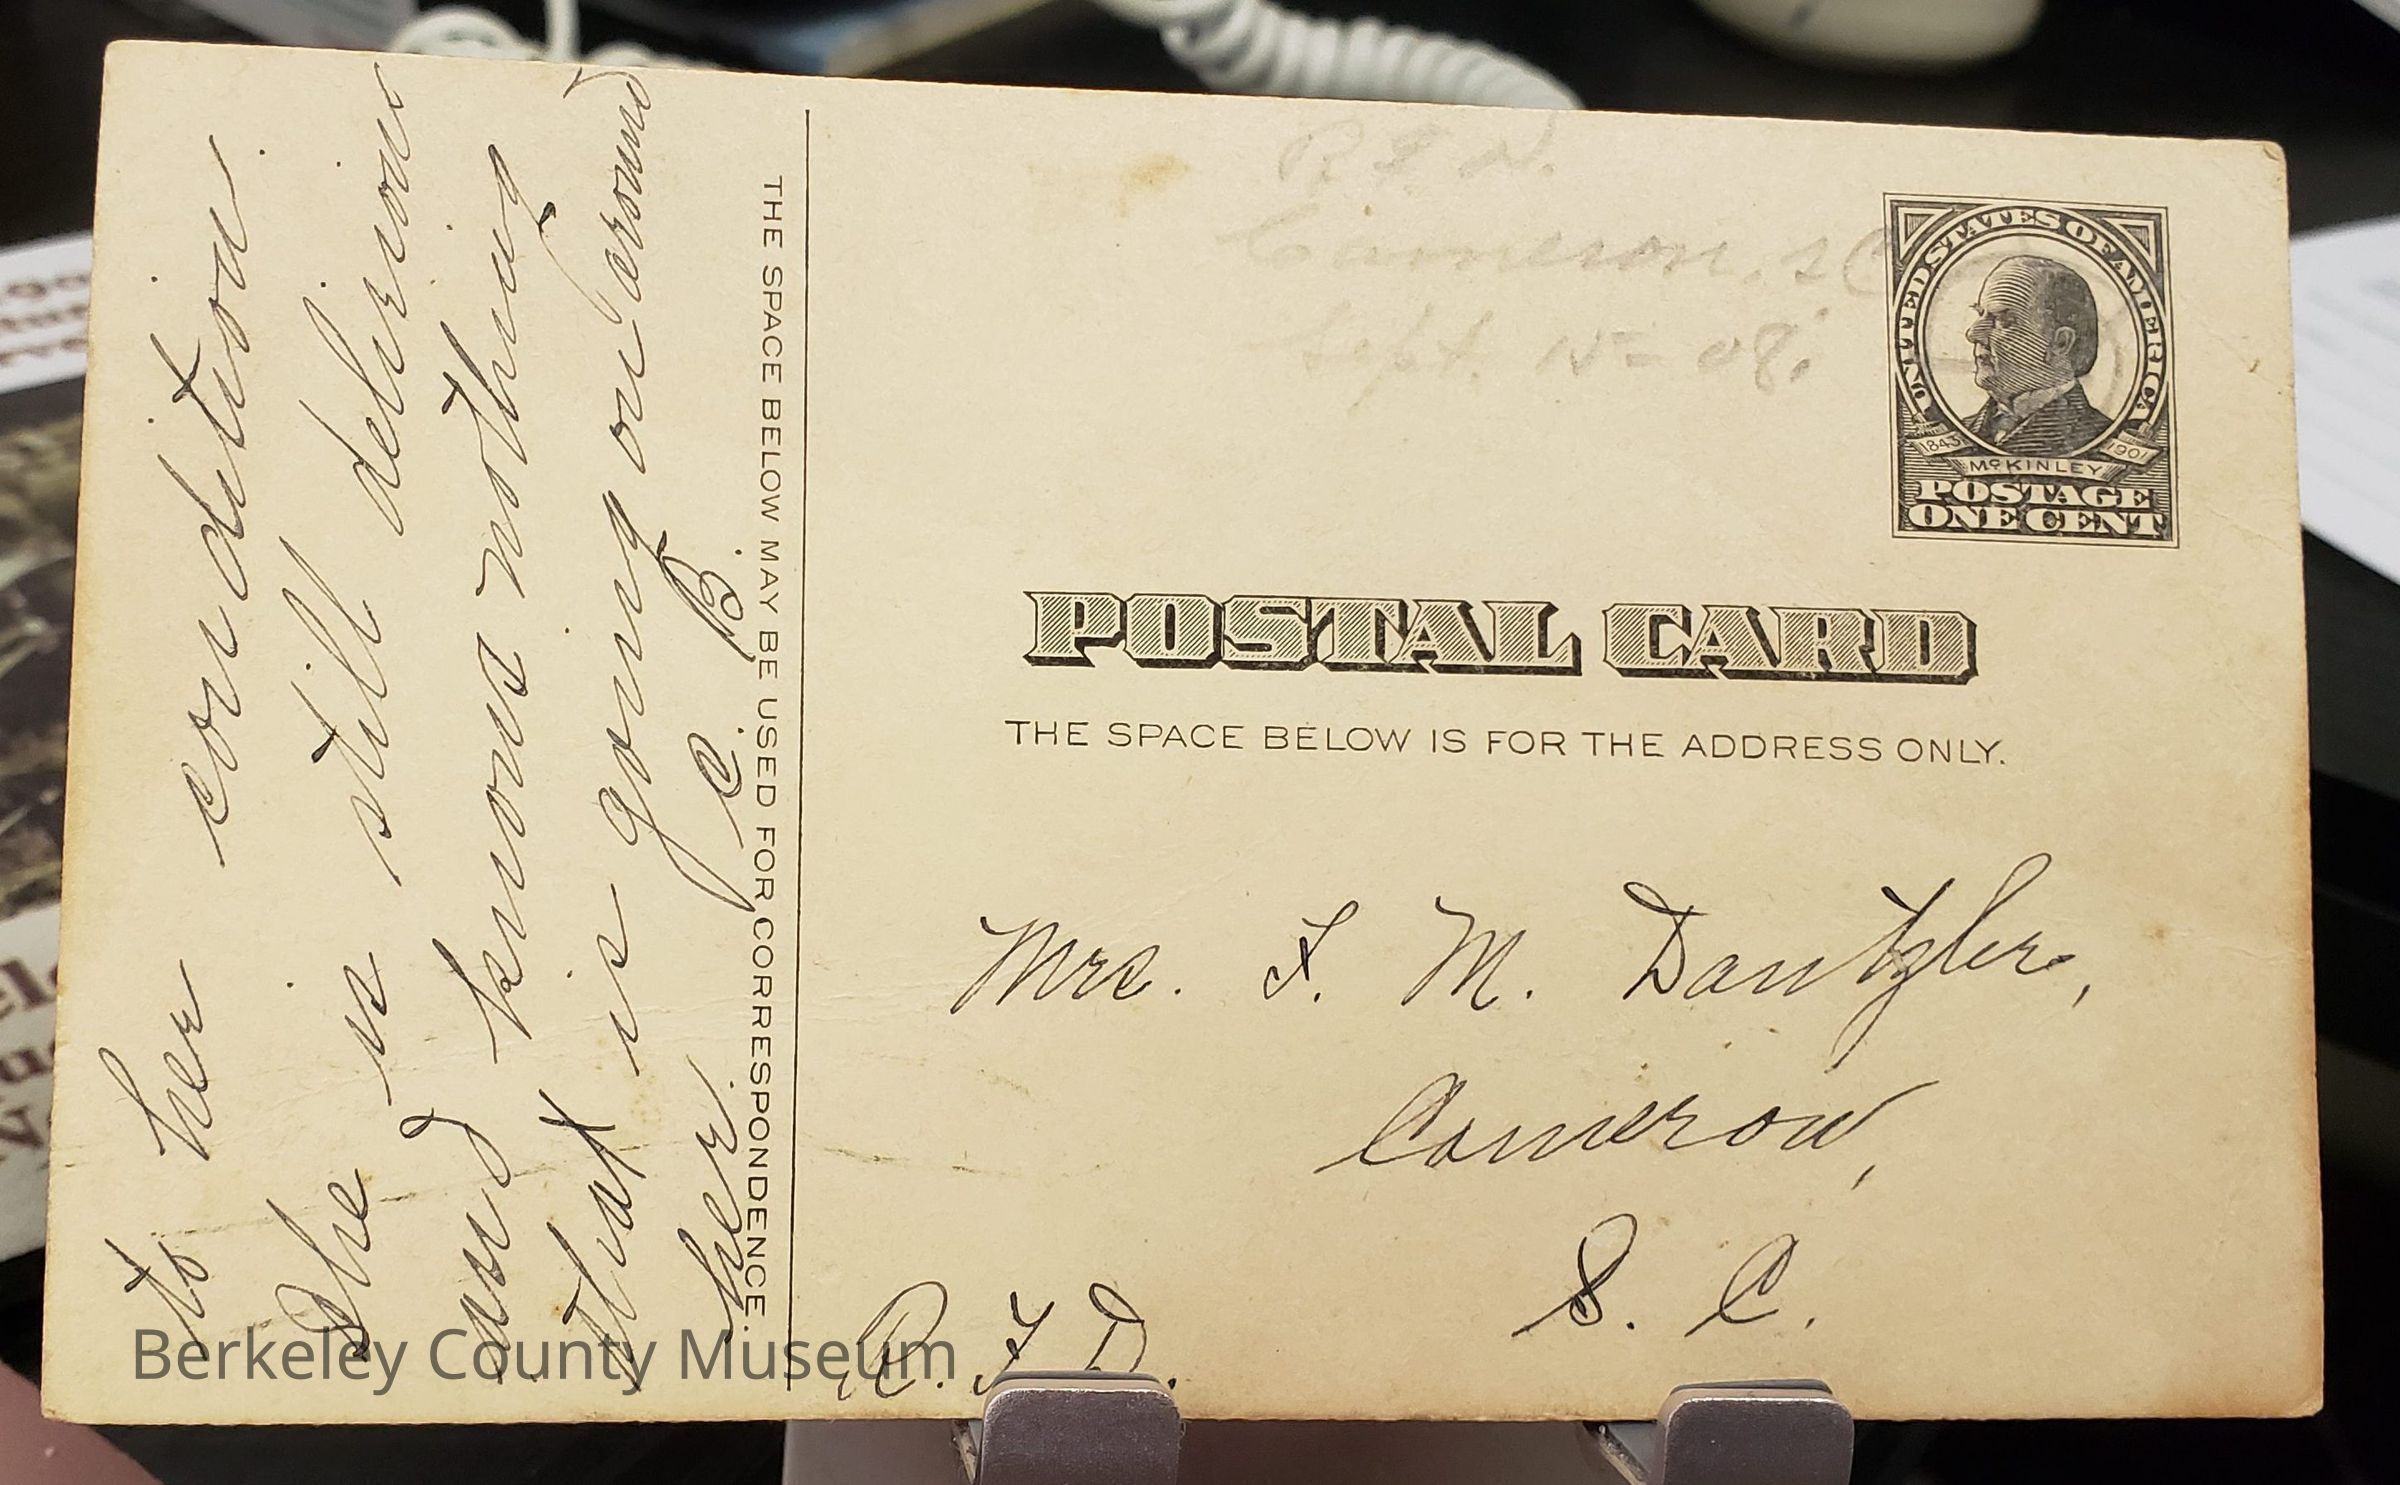 to her condition.
She is still delirious
and knows nothing
that is going on around
her. C. B.
THE SPACE BELOW MAY BE USED FOR CORRESPONDENCE.
R. F. D.
Cameron, S C
Sept. 15 = 08.
UNITED STATES OF AMERICA
1843 1901
McKINLEY
POSTAGE
ONE CENT
POSTAL CARD
THE SPACE BELOW IS FOR THE ADDRESS ONLY.
Mrs. F. M. Dantzler,
Cameron,
S. C.
R. F. D.
Berkeley County Museum